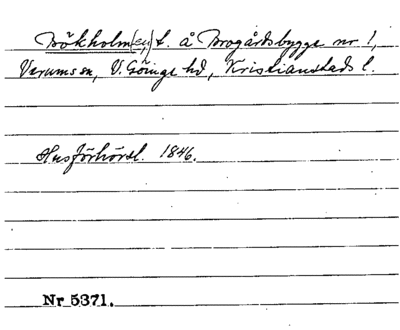 Bökholm(en) t. å Brogårdsbygge nr 1,
Verums sn, V. Göinge hd, Kristianstads l.
Husförhörsl. 1846.
Nr 5371.